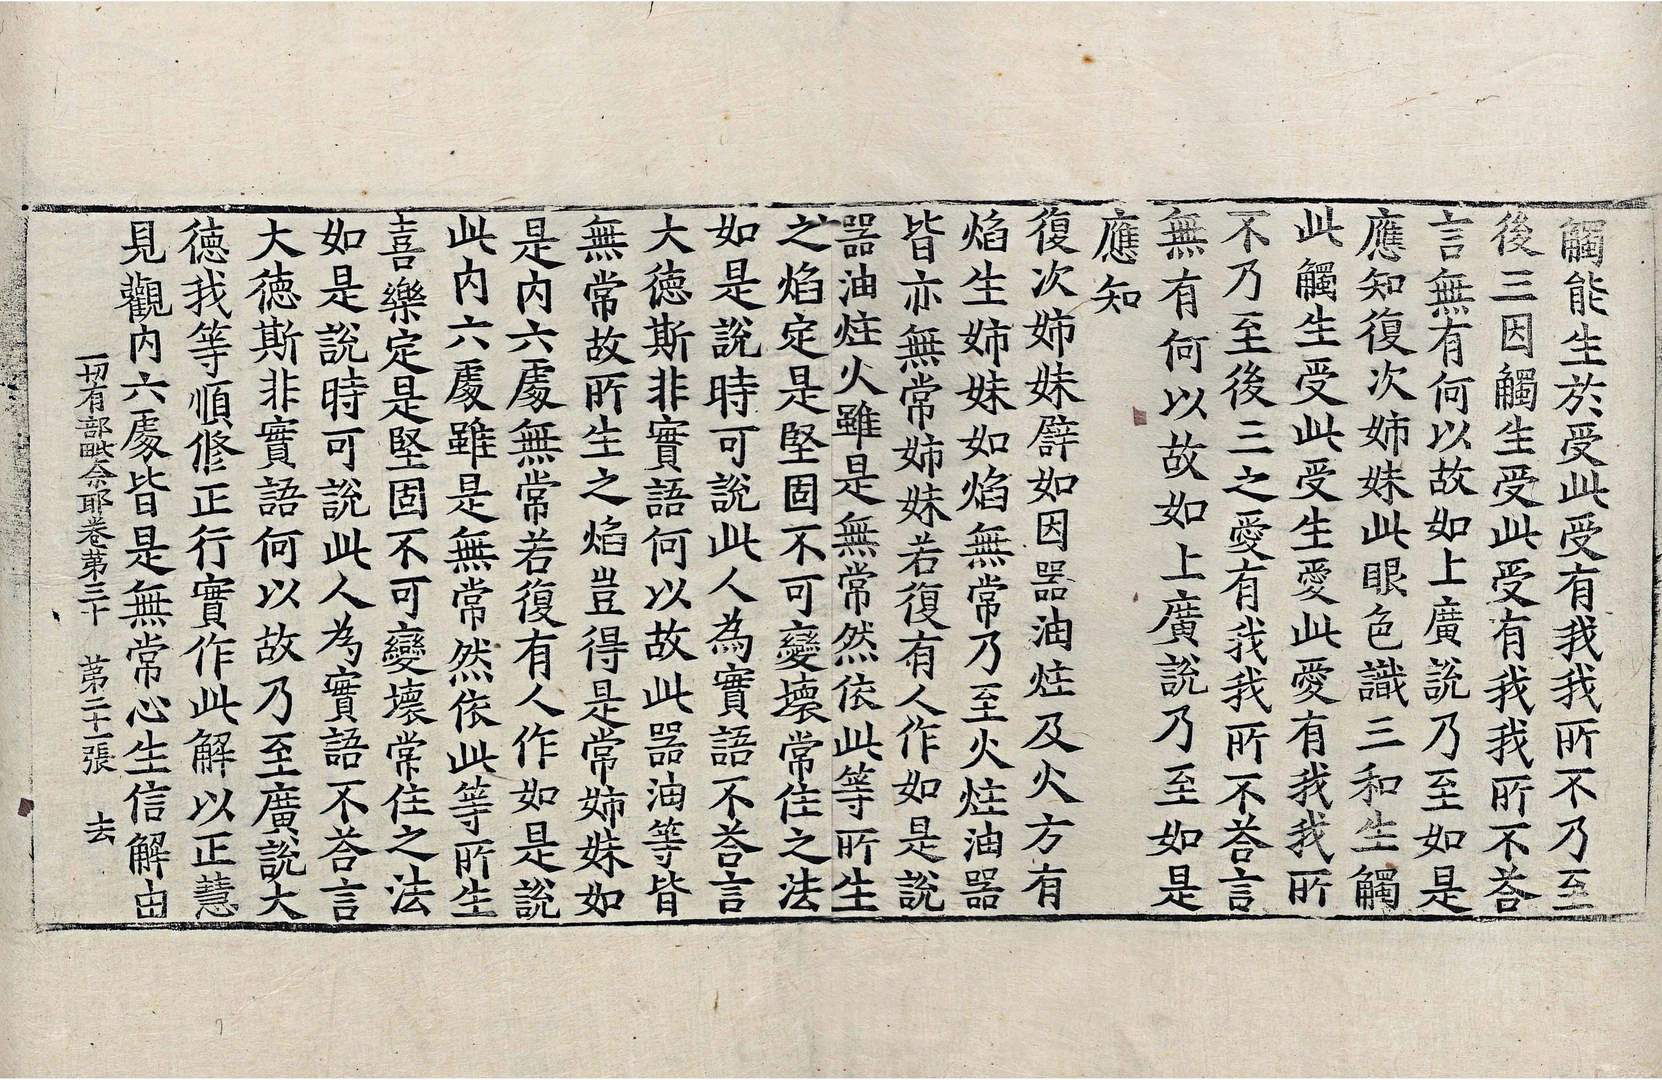 觸能生於受此受有我我所不乃至
後三因觸生受此受有我我所不荅
言無有何以故如上廣說乃至如是
應知復次姉妹此眼色識三和生觸
此觸生受此受生愛此愛有我我所
不乃至後三之愛有我我所不荅言
無有何以故如上廣說乃至如是
應知
復次姉妹譬如因器油炷及火方有
焰生姉妹如焰無常乃至火炷油器
皆亦無常姉妹若復有人作如是說
器油炷火雖是無常然依此等所生
之焰定是堅固不可變壞常住之法
如是說時可說此人為實語不荅言
大德斯非實語何以故此器油等皆
無常故所生之焰豈得是常姉妹如
是內六處無常若復有人作如是說
此內六處雖是無常然依此等所生
喜樂定是堅固不可變壞常住之法
如是說時可說此人為實語不荅言
大德斯非實語何以故乃至廣說大
德我等順修正行實作此解以正慧
見觀內六處皆是無常心生信解由
一切有部毗奈耶卷第三十 第二十一張 去